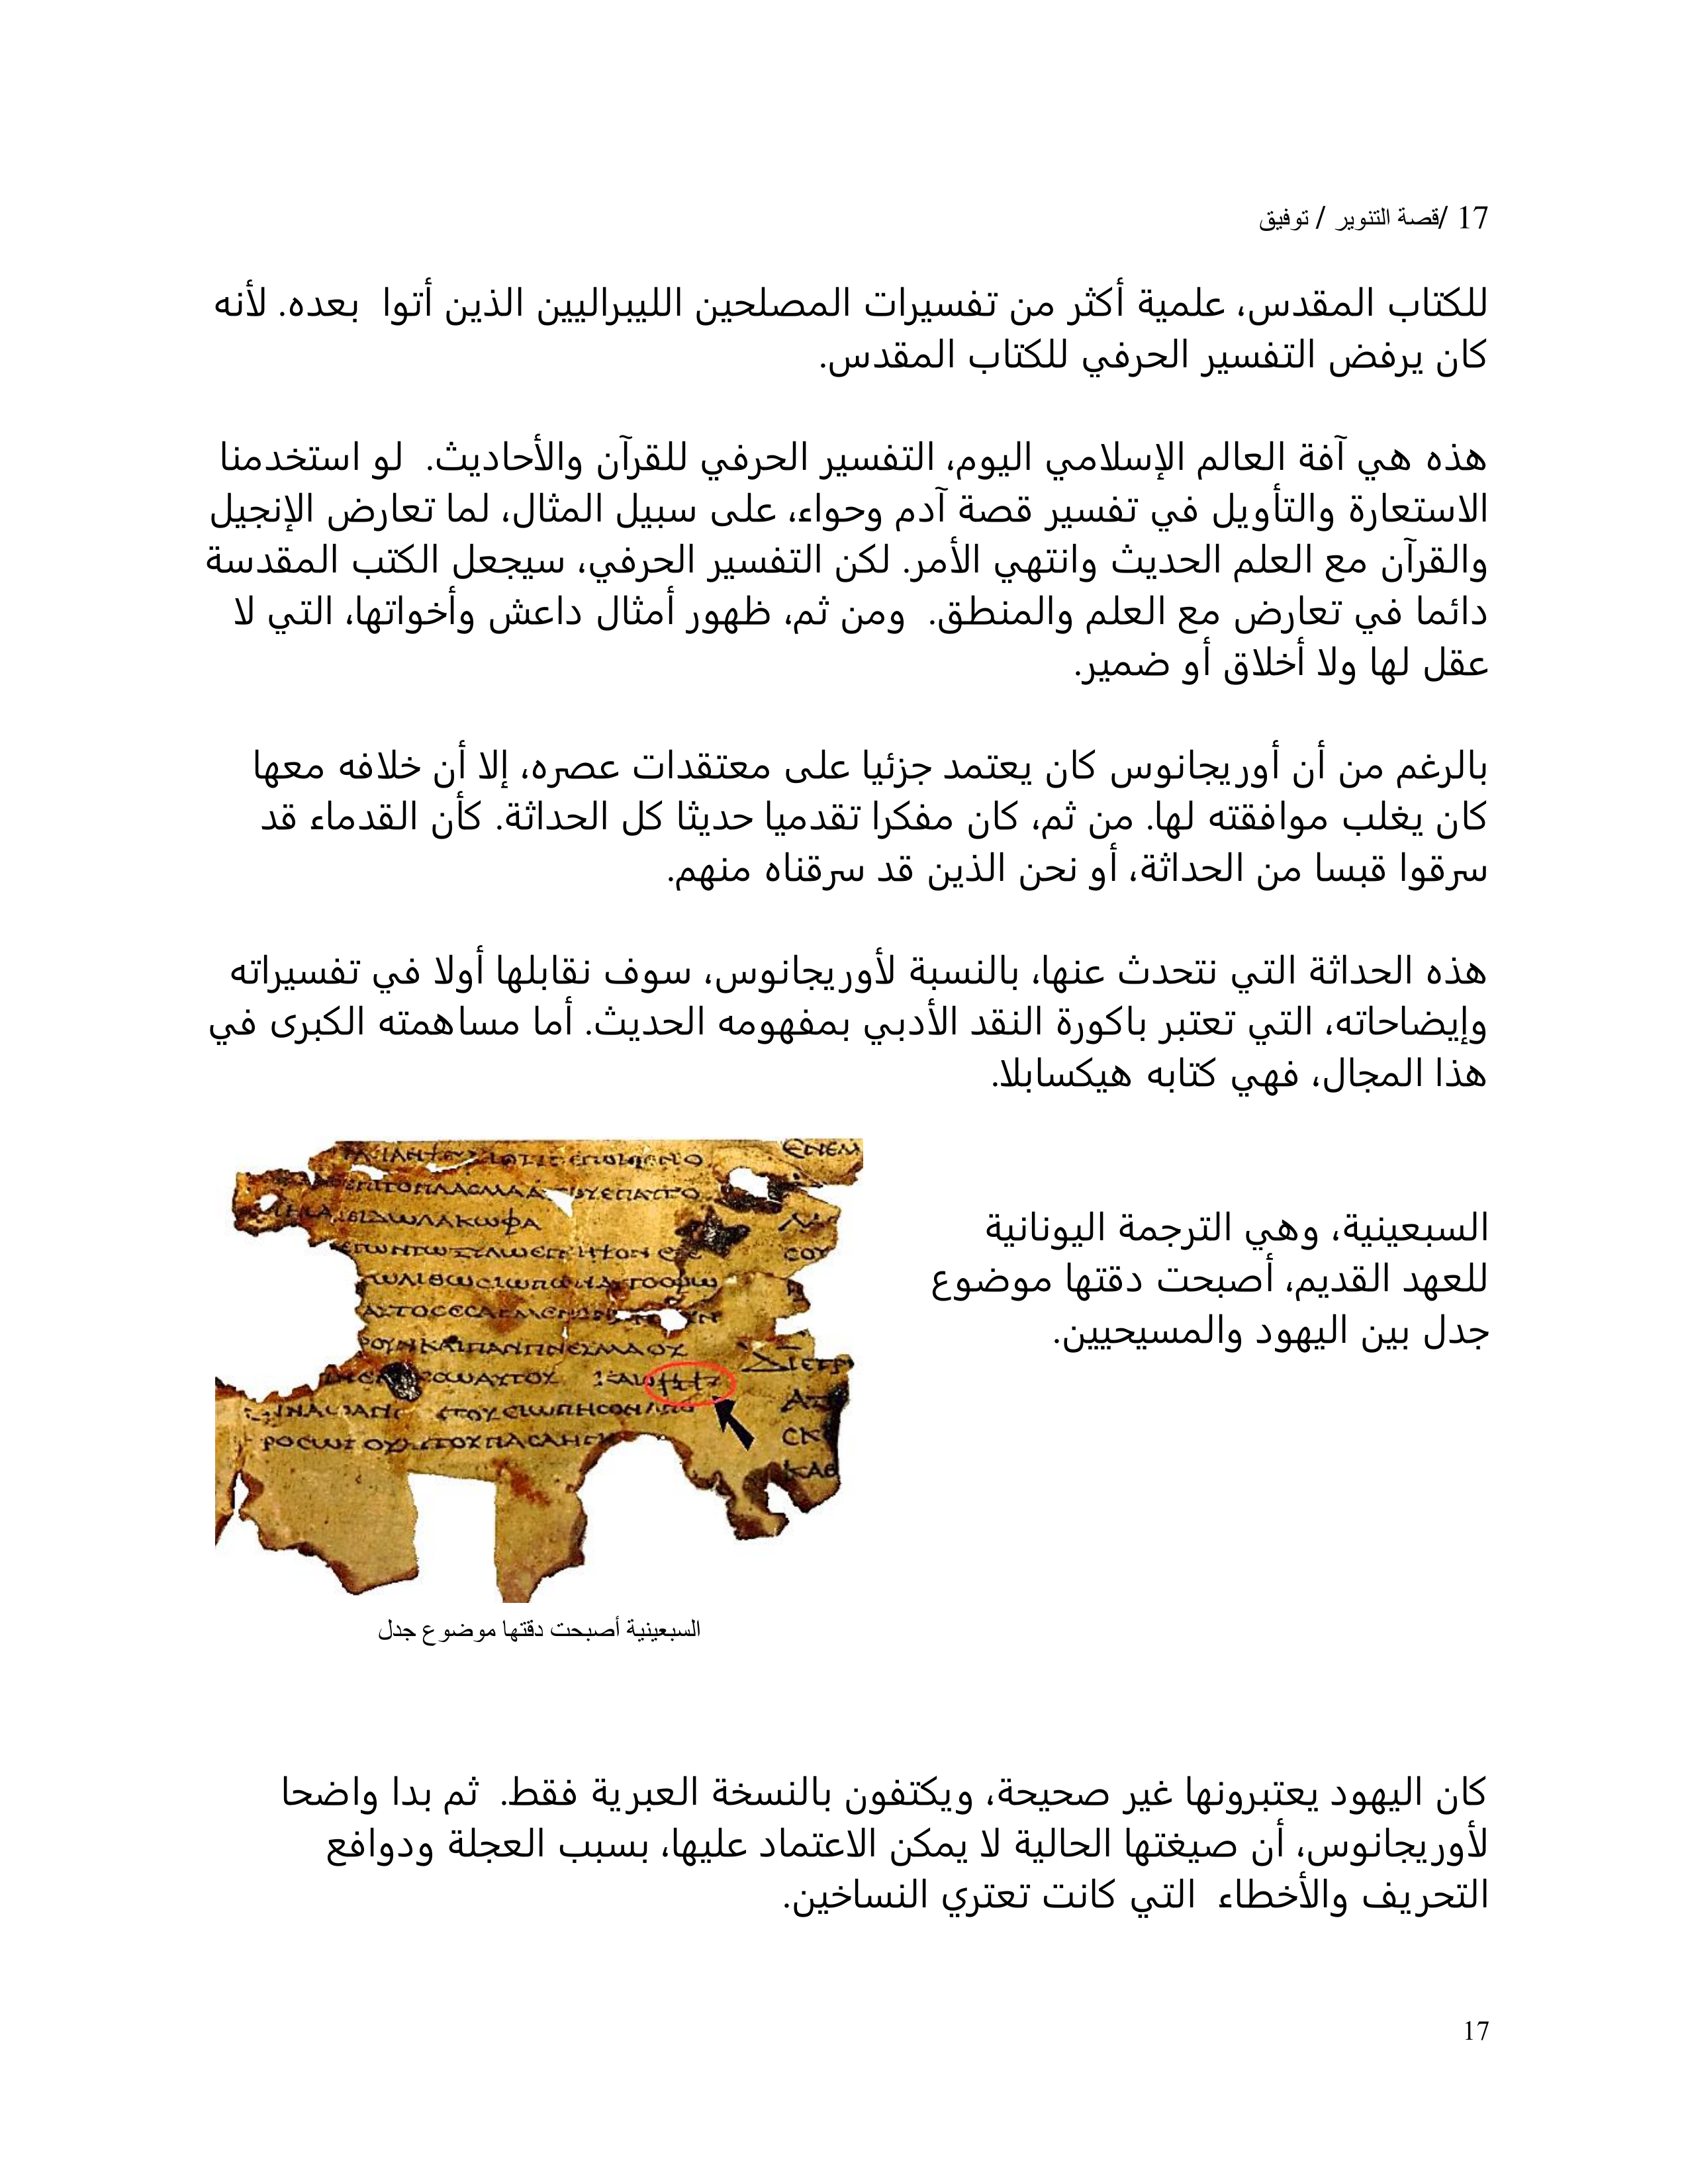 17 /قصة التنوير / توفيق
للكتاب المقدس، علمية أكثر من تفسيرات المصلحين الليبراليين الذين أتوا  بعده. لأنه
كان يرفض التفسير الحرفي للكتاب المقدس.
هذه هي آفة العالم الإسلامي اليوم، التفسير الحرفي للقرآن والأحاديث.  لو استخدمنا
الاستعارة والتأويل في تفسير قصة آدم وحواء، على سبيل المثال، لما تعارض الإنجيل
والقرآن مع العلم الحديث وانتهي الأمر. لكن التفسير الحرفي، سيجعل الكتب المقدسة
دائما في تعارض مع العلم والمنطق.  ومن ثم، ظهور أمثال داعش وأخواتها، التي لا
عقل لها ولا أخلاق أو ضمير.
بالرغم من أن أوريجانوس كان يعتمد جزئيا على معتقدات عصره، إلا أن خلافه معها
كان يغلب موافقته لها. من ثم، كان مفكرا تقدميا حديثا كل الحداثة. كأن القدماء قد
سرقوا قبسا من الحداثة، أو نحن الذين قد سرقناه منهم.
هذه الحداثة التي نتحدث عنها، بالنسبة لأوريجانوس، سوف نقابلها أولا في تفسيراته
وإيضاحاته، التي تعتبر باكورة النقد الأدبي بمفهومه الحديث. أما مساهمته الكبرى في
هذا المجال، فهي كتابه هيكسابلا.
السبعينية، وهي الترجمة اليونانية
للعهد القديم، أصبحت دقتها موضوع
جدل بين اليهود والمسيحيين.
السبعينية أصبحت دقتها موضوع جدل
كان اليهود يعتبرونها غير صحيحة، ويكتفون بالنسخة العبرية فقط.  ثم بدا واضحا
لأوريجانوس، أن صيغتها الحالية لا يمكن الاعتماد عليها، بسبب العجلة ودوافع
التحريف والأخطاء  التي كانت تعتري النساخين.
17